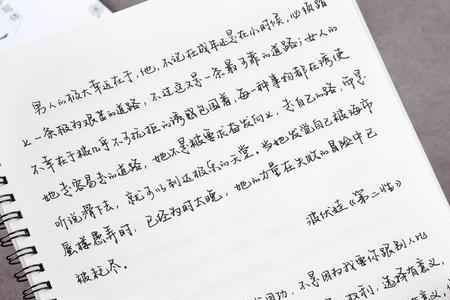 男人的极大幸运在于,他,不论在成年还是在小时候,必须踏
上一条极为艰苦的道路,不过这又是一条最可靠的道路;女人的
不幸在于被几乎不可抗拒的诱惑包围着,每一种事物都在诱使
她走容易走的道路,她不是被要求奋发向上,走自己的路,而是
听说滑下去,就可以到达极乐的天堂。当她发觉自己被海市
蜃楼愚弄时,已经为时太晚,她的力量在失败的冒险中已
被耗尽。
波伏娃《第二性》
用功,不是因为我要你跟别人比
权利,选择有意义、